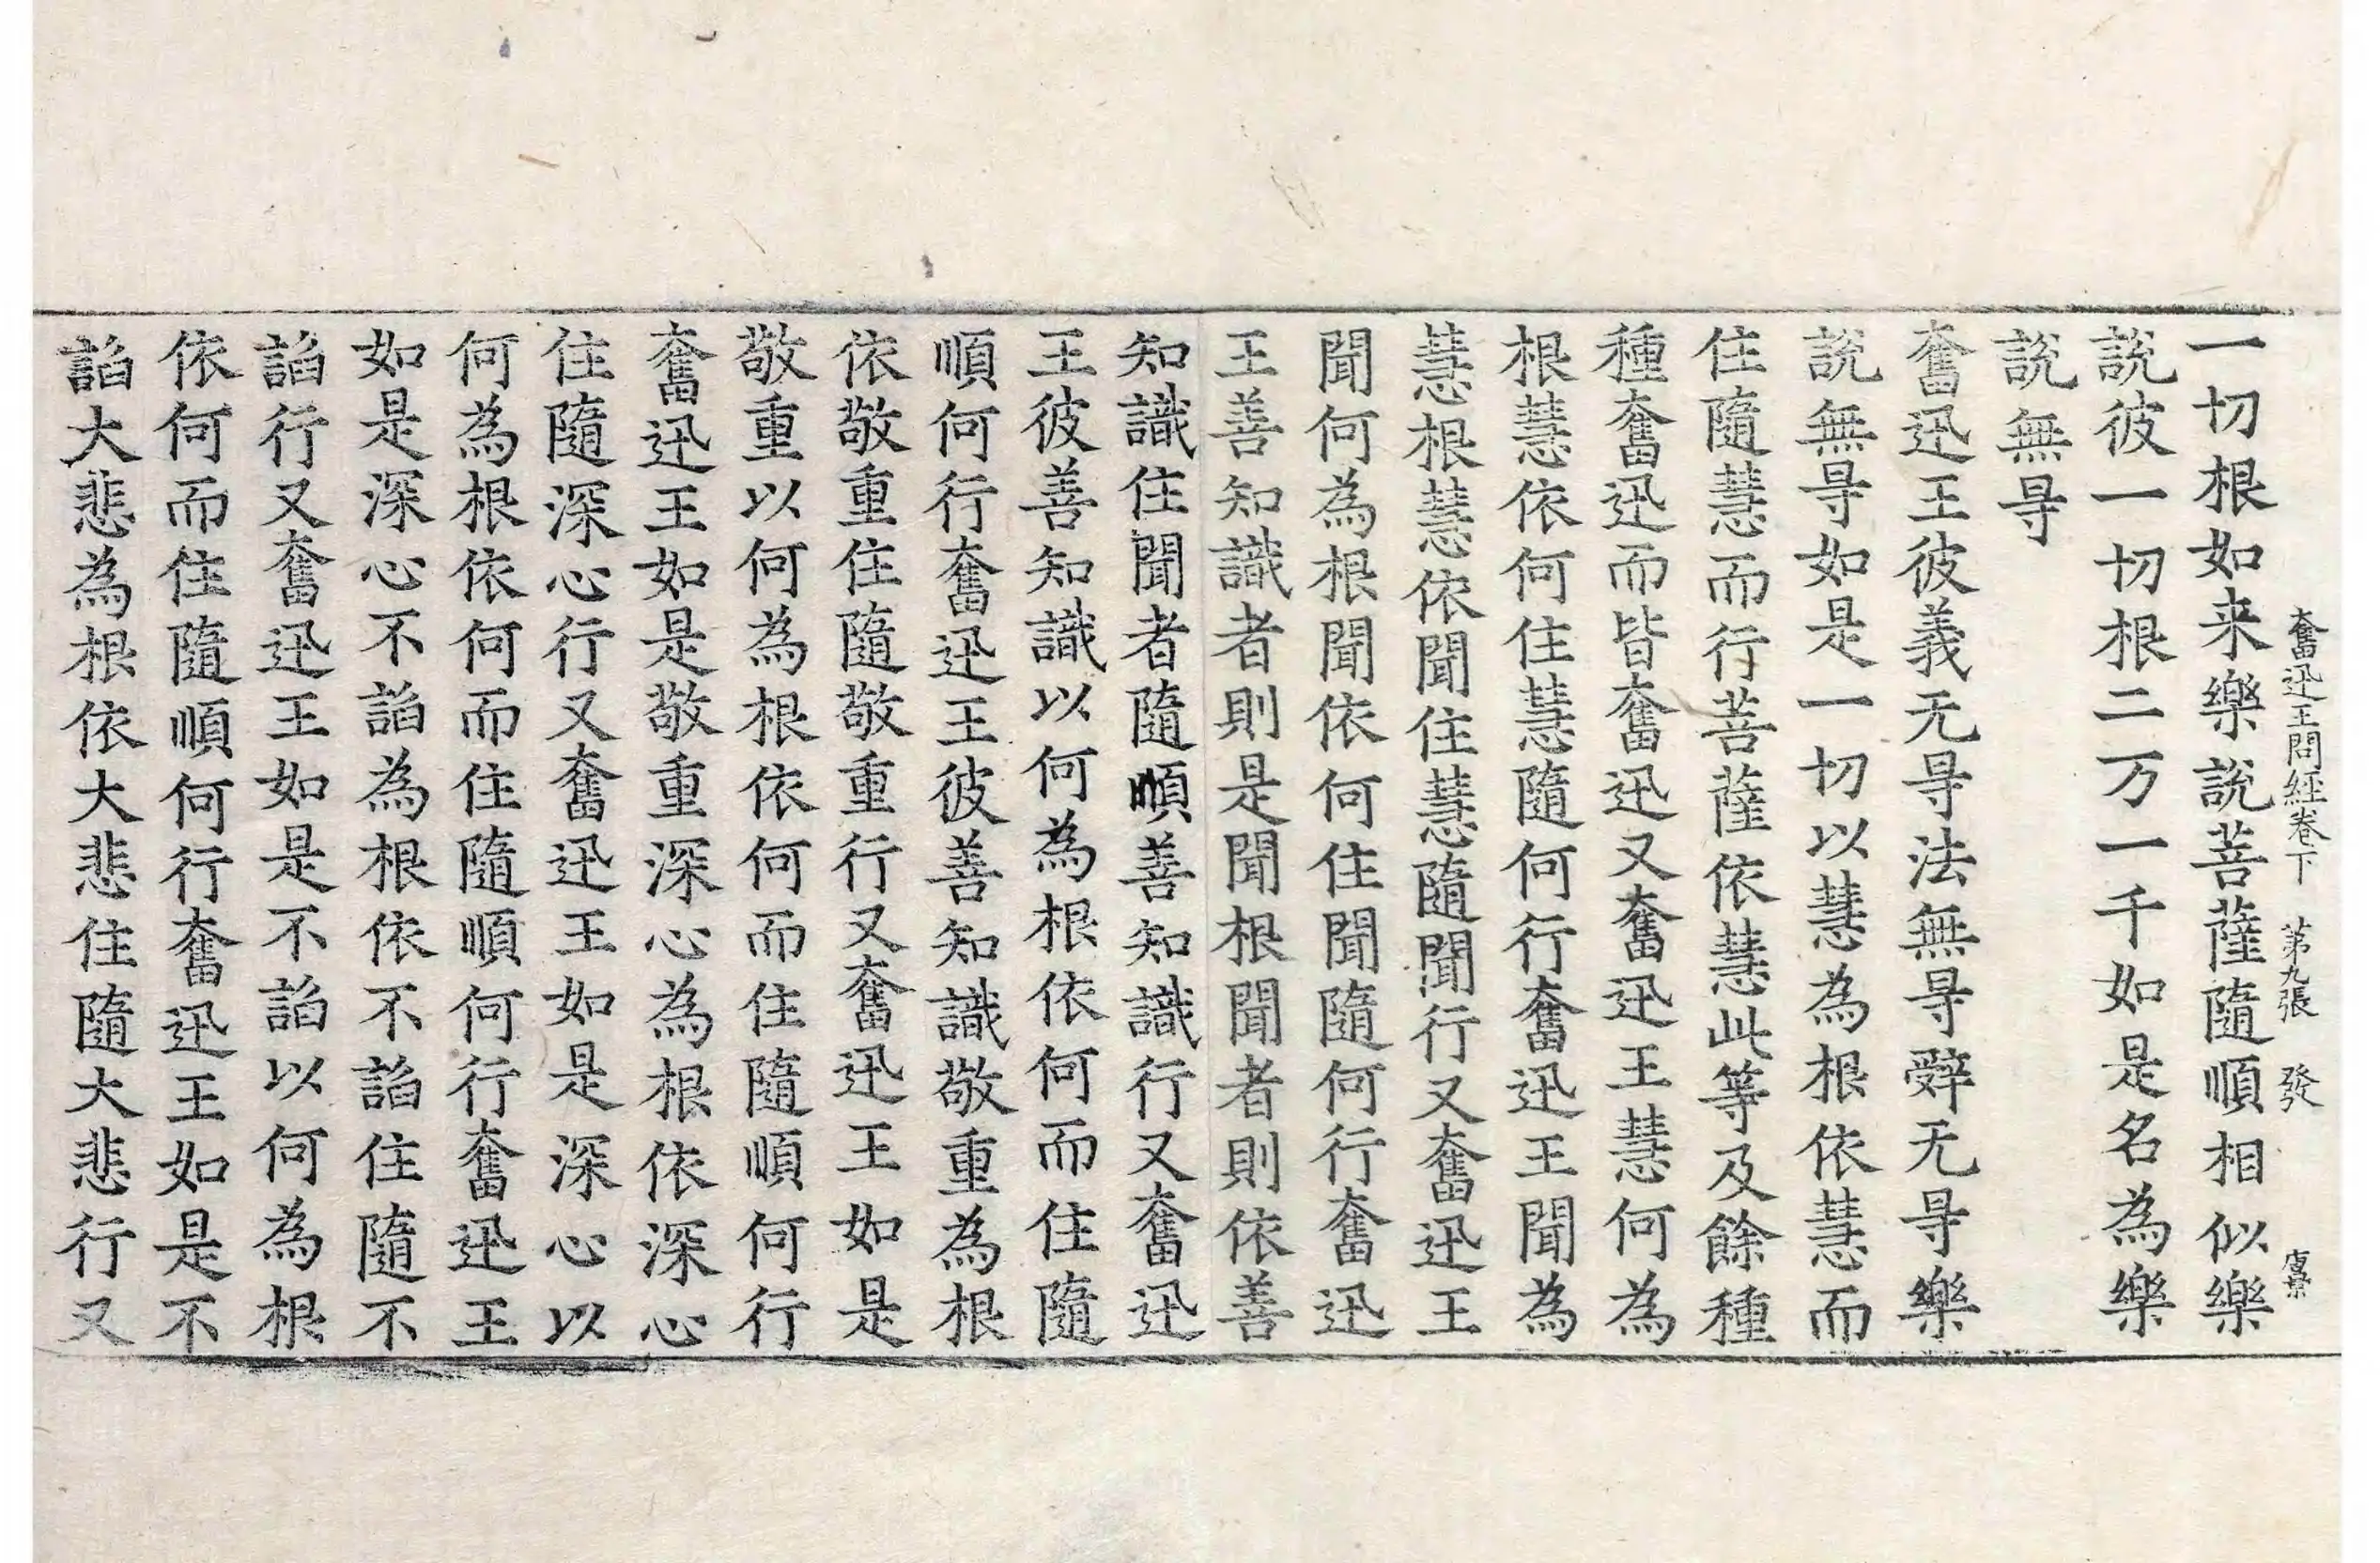 奮迅王問經卷下 第九張 發
一切根如来樂說菩薩隨順相似樂
說彼一切根二万一千如是名為樂
說無㝵
奮迅王彼義无㝵法無㝵辤无㝵樂
說無㝵如是一切以慧為根依慧而
住隨慧而行菩薩依慧此等及餘種
種奮迅而皆奮迅又奮迅王慧何為
根慧依何住慧隨何行奮迅王聞為
慧根慧依聞住慧隨聞行又奮迅王
聞何為根聞依何住聞隨何行奮迅
王善知識者則是聞根聞者則依善
知識住聞者隨順善知識行又奮迅
王彼善知識以何為根依何而住隨
順何行奮迅王彼善知識敬重為根
依敬重住隨敬重行又奮迅王如是
敬重以何為根依何而住隨順何行
奮迅王如是敬重深心為根依深心
住隨深心行又奮迅王如是深心以
何為根依何而住隨順何行奮迅王
如是深心不諂為根依不諂住隨不
諂行又奮迅王如是不諂以何為根
依何而住隨順何行奮迅王如是不
諂大悲為根依大悲住隨大悲行又